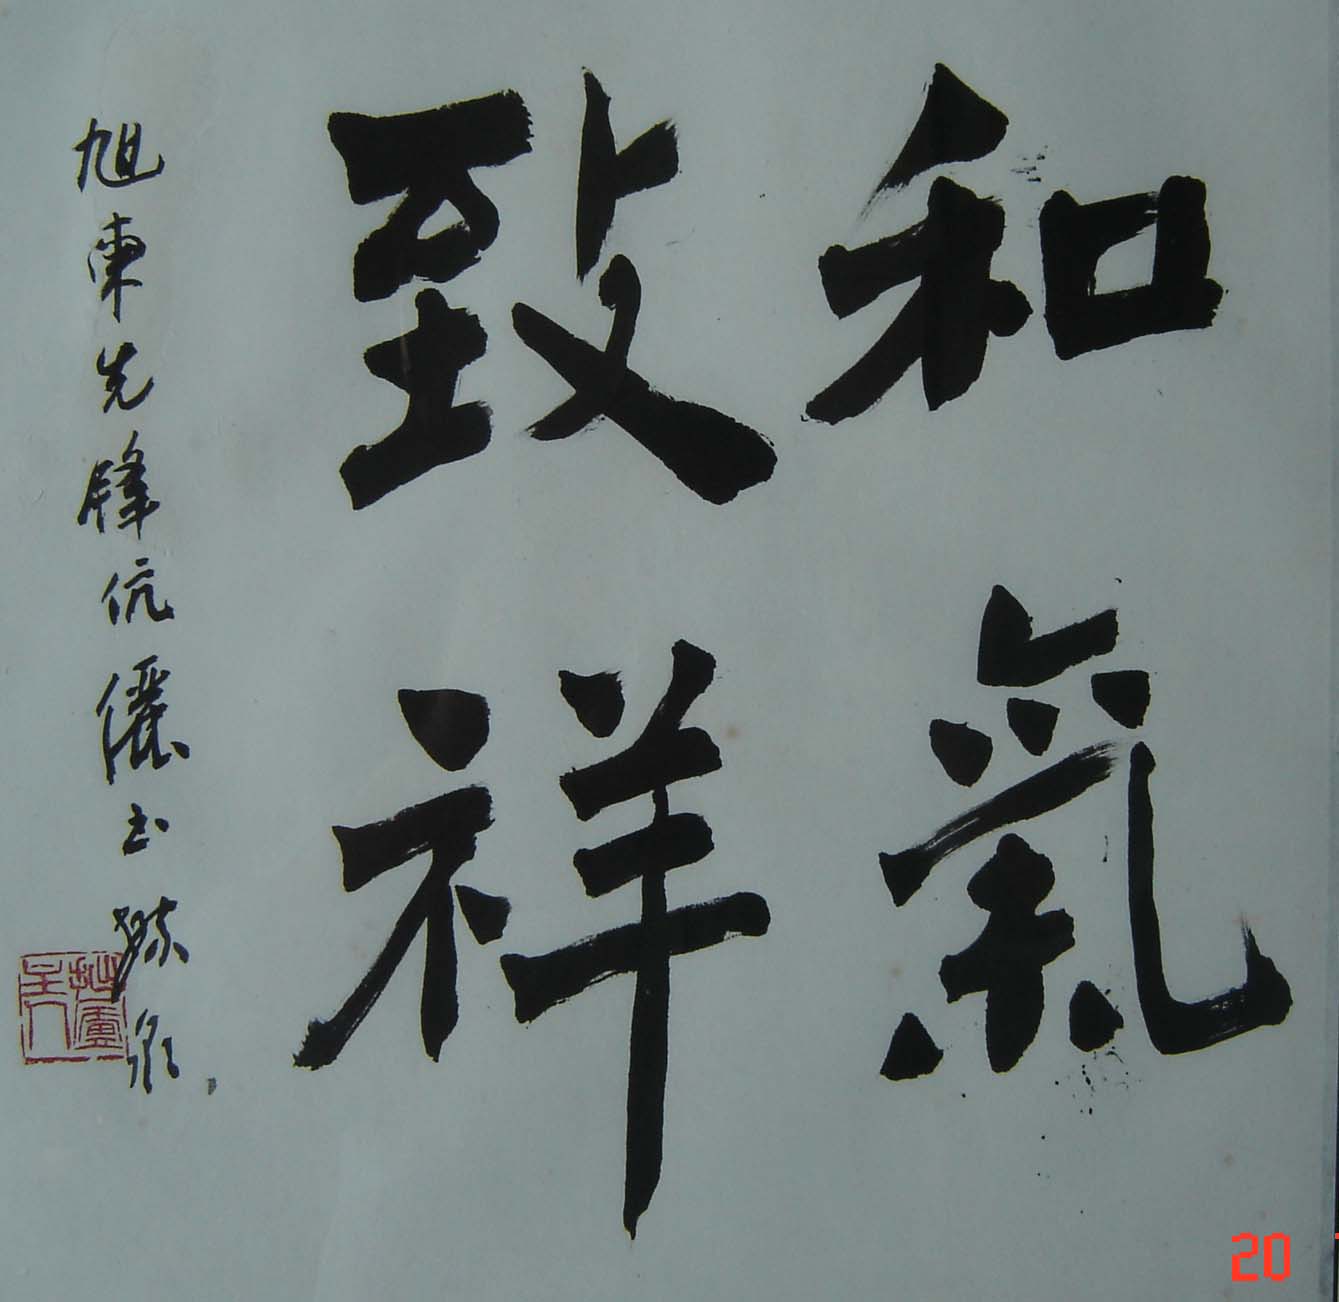 和氣
致祥
旭東先鋒伉儷
20